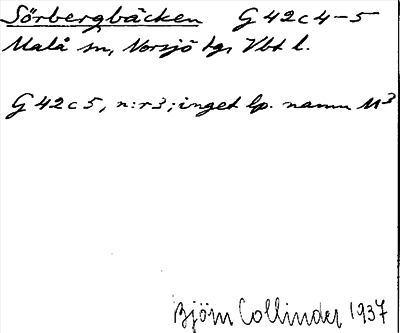 Sörbergbäcken G 42 c 4-5
Malå sn, Norsjö tgs Vbt l.
G 42 c 5, n:r 3; inget lp. namn M³
Björn Collinder 1937